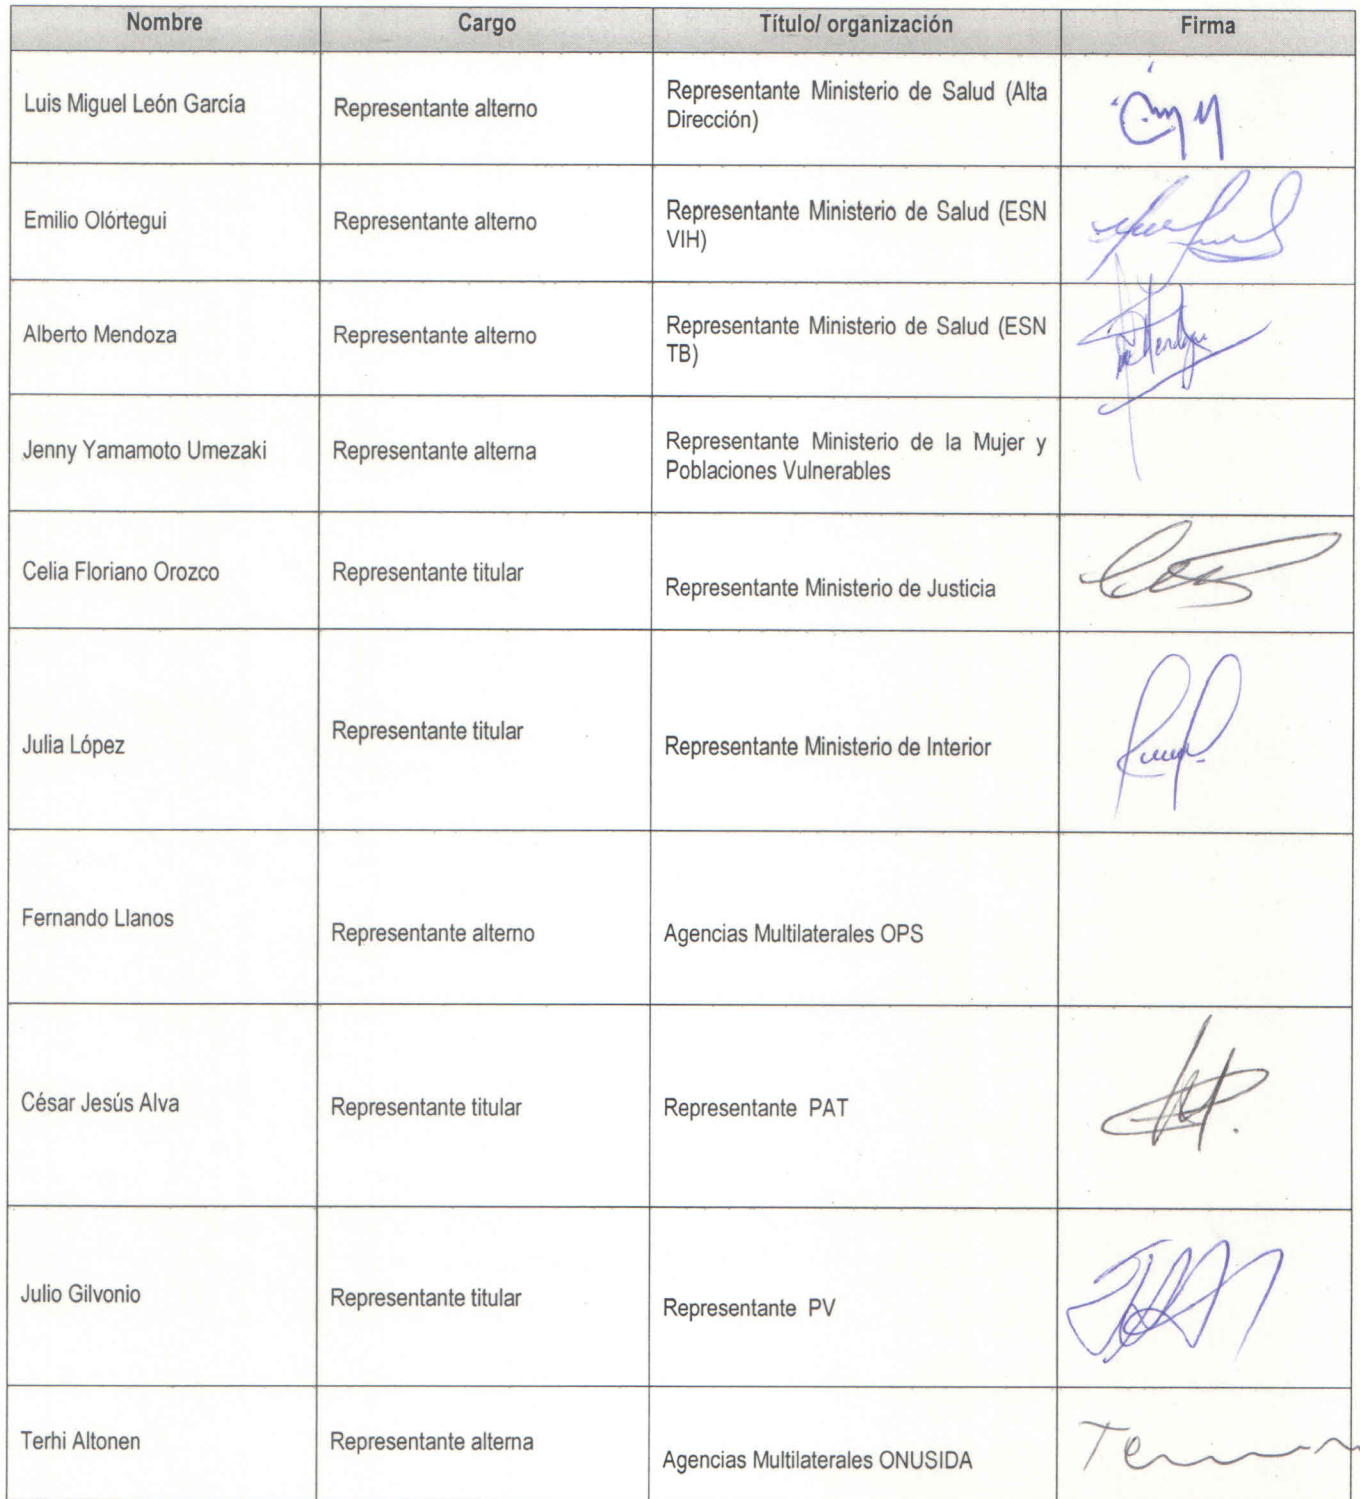 Nombre Cargo Título/ organización Firma
Luis Miguel León García Representante alterno Representante Ministerio de Salud (Alta
Dirección)
Emilio Olórtegui Representante alterno Representante Ministerio de Salud (ESN
VIH)
Alberto Mendoza Representante alterno Representante Ministerio de Salud (ESN
TB)
Jenny Yamamoto Umezaki Representante alterna Representante Ministerio de la Mujer y
Poblaciones Vulnerables
Celia Floriano Orozco Representante titular Representante Ministerio de Justicia
Julia López Representante titular Representante Ministerio de Interior
Fernando Llanos Representante alterno Agencias Multilaterales OPS
César Jesús Alva Representante titular Representante PAT
Julio Gilvonio Representante titular Representante PV
Terhi Altonen Representante alterna Agencias Multilaterales ONUSIDA